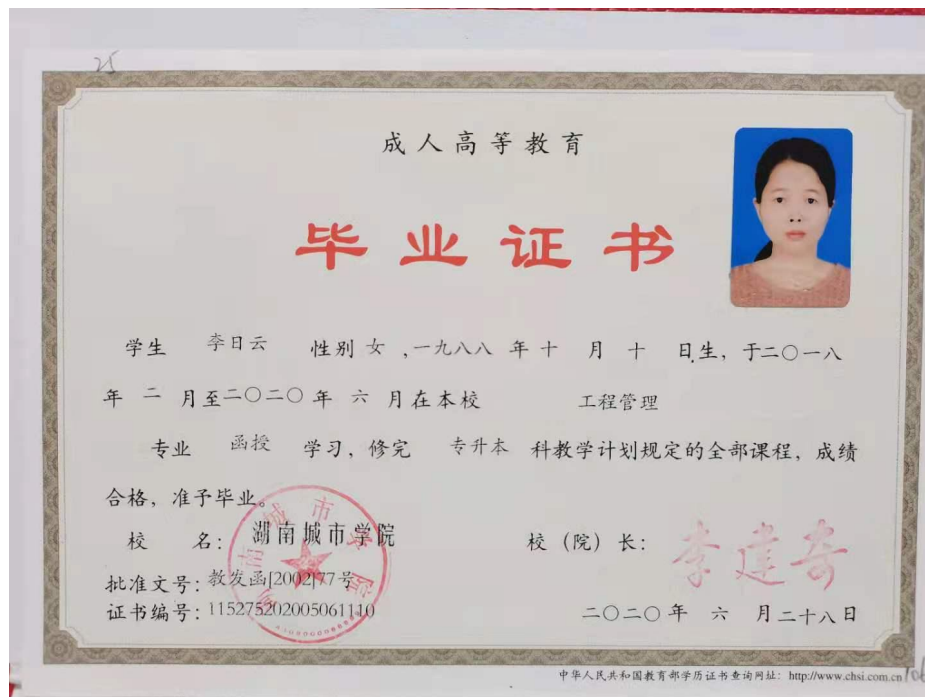 25
成人高等教育
毕业证书
学生 李日云 性别 女 ,一九八八 年 十 月 十 日生, 于二〇一八
年 二 月至二〇二〇年 六 月在本校 工程管理
专业 函授 学习, 修完 专升本 科教学计划规定的全部课程, 成绩
合格, 准予毕业。
校 名: 湖南城市学院 校（院）长: 李建奇
批准文号: 教发函[2002]77号
证书编号: 115275202005061110 二〇二〇年 六 月二十八日
湖南城市学院
中华人民共和国教育部学历证书查询网址: http://www.chsi.com.cn